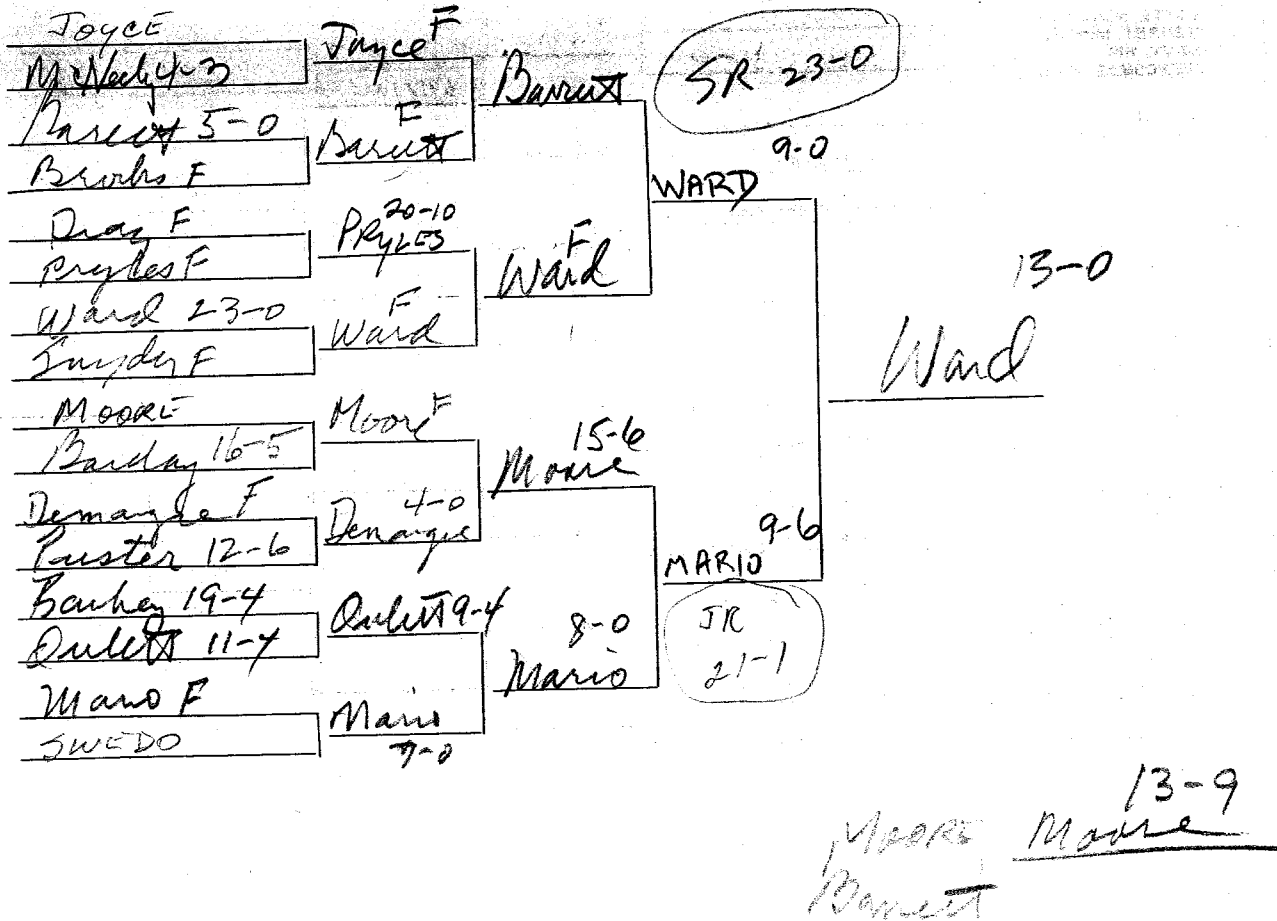 JOYCE
McNeely 4-3
Barrett 5-0
Brooks F
Dray F
Pryles F
Ward 23-0
Snyder F
MOORE
Barclay 16-5
Demangle F
Puster 12-6
19-4
Oulett 11-4
Mario F
SWEDO
Joyce F
F
Barrett
20-10
PRYLES
F
Ward
Moore F
4-0
Demangie
Oulett 9-4
Mario
7-0
Barrett
F
Ward
15-6
Moore
8-0
Mario
SR 23-0
9-0
WARD
9-6
MARIO
JR
21-1
13-0
Ward
13-9
MOORE Moore
Barrett